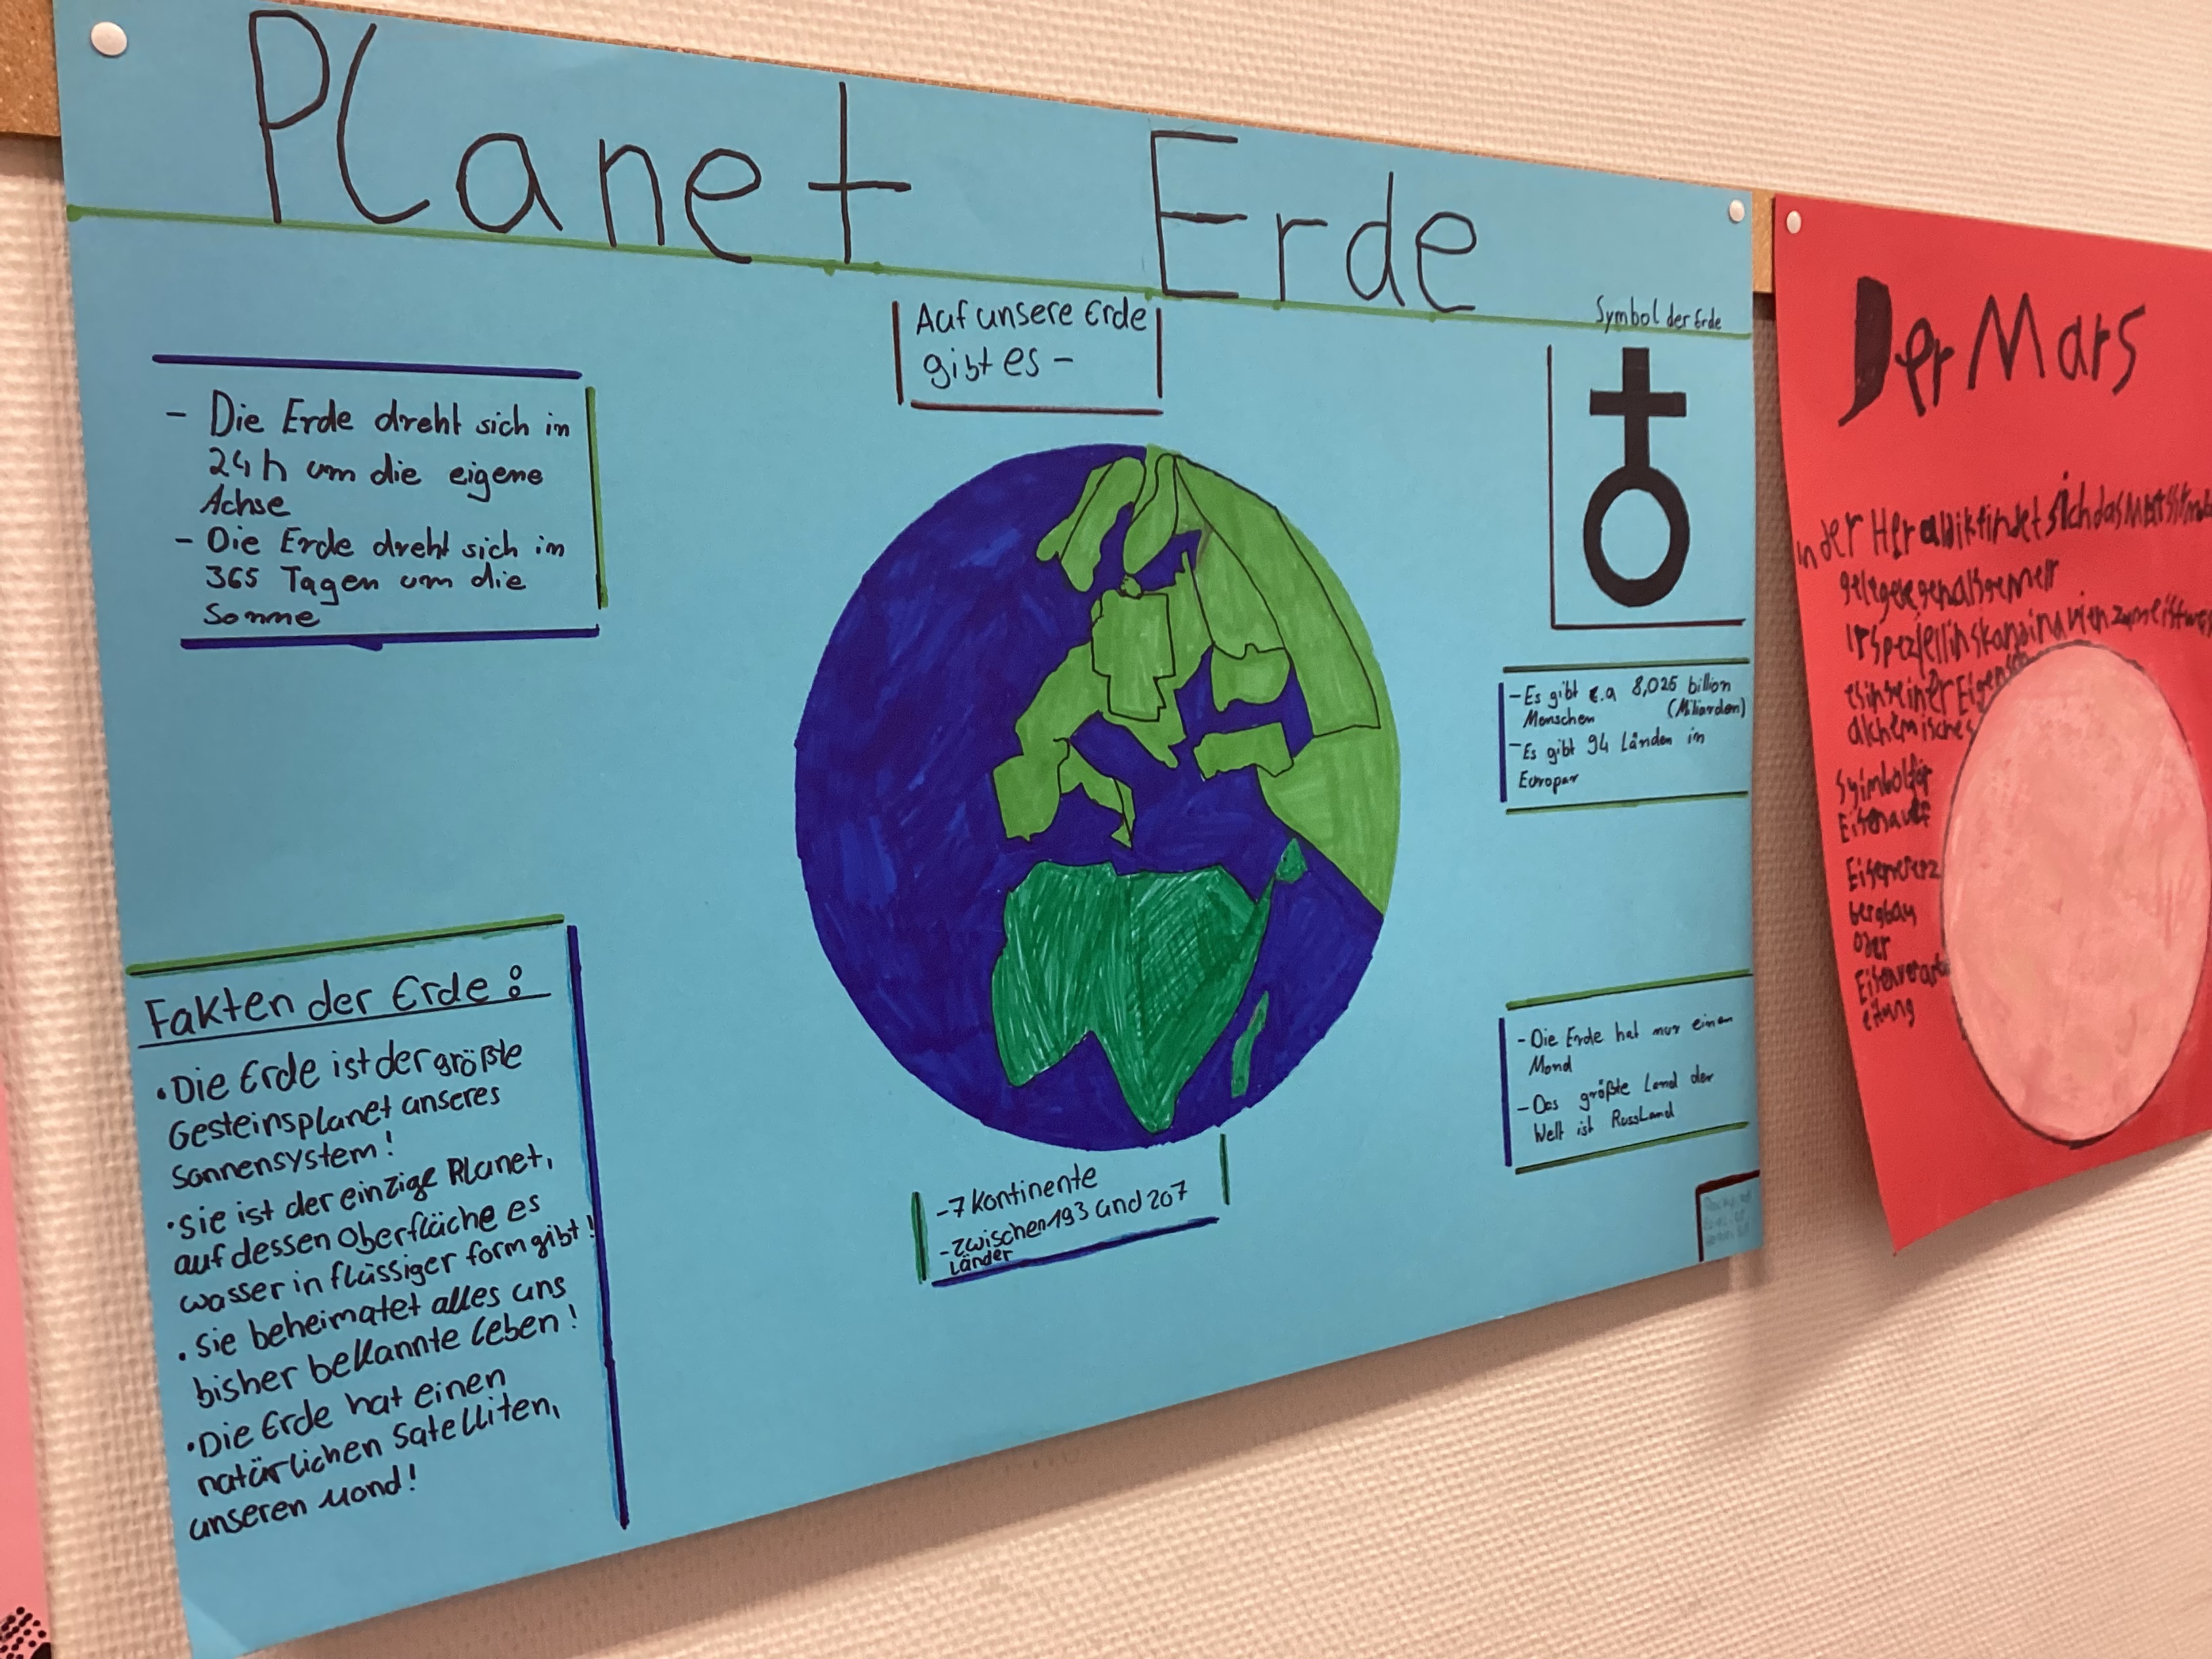 Planet Erde
Auf unsere Erde
gibt es -
Symbol der Erde
- Die Erde dreht sich in
24 h um die eigene
Achse
- Die Erde dreht sich im
365 Tagen um die
Sonne
- Es gibt c.a 8,025 billion
Menschen (Miliarden)
- Es gibt 94 Länden in
Europar
Fakten der Erde:
• Die Erde ist der größte
Gesteinsplanet unseres
Sonnensystem!
• Sie ist der einzige Planet,
auf dessen Oberfläche es
wasser in flüssiger form gibt!
• Sie beheimatet alles uns
bisher bekannte leben!
• Die Erde hat einen
natürlichen Satelliten,
unseren Mond!
- 7 Kontinente
- Zwischen 193 und 207
Länder
- Die Erde hat nur einen
Mond
- Das größte Land der
Welt ist Russland
Der Mars
In der Heraldik findet sich das
esinseiner
alchemisches
Syimbolför
Eisenauf
Eisenererz
bergbau
oder
Eisenverarb
eitung